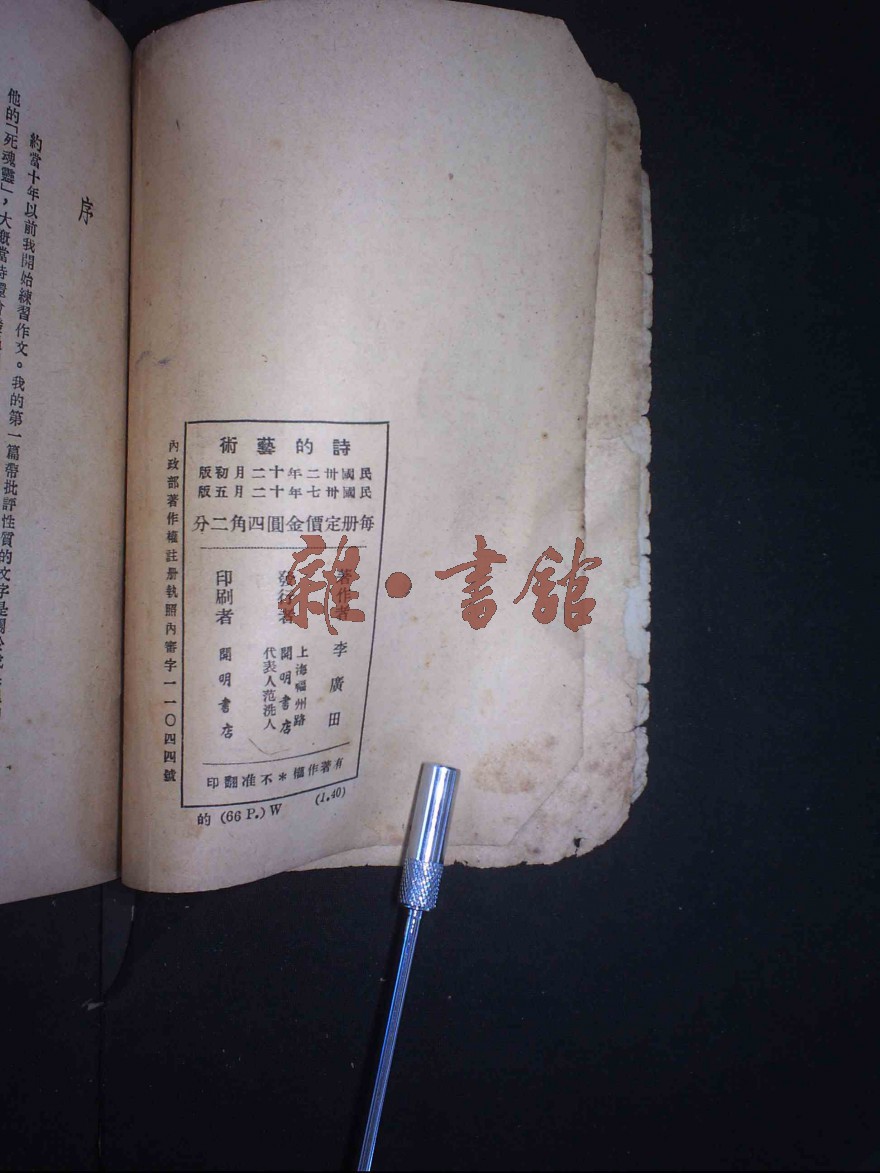 詩的藝術
民國卅二年十二月初版
民國卅七年十二月五版
每册定價金圓四角二分
著作者 李廣田
發行者 上海福州路
開明書店
代表人范洗人
印刷者 開明書店
有著作權＊不准翻印
(1.40)
的 (66 P.) W
內政部著作權註册執照內審字一一〇四四號
序
約當十年以前我開始練習作文。我的第一篇帶批評性質的文字是關於
他的「死魂靈」，大概當時還
雜·書館